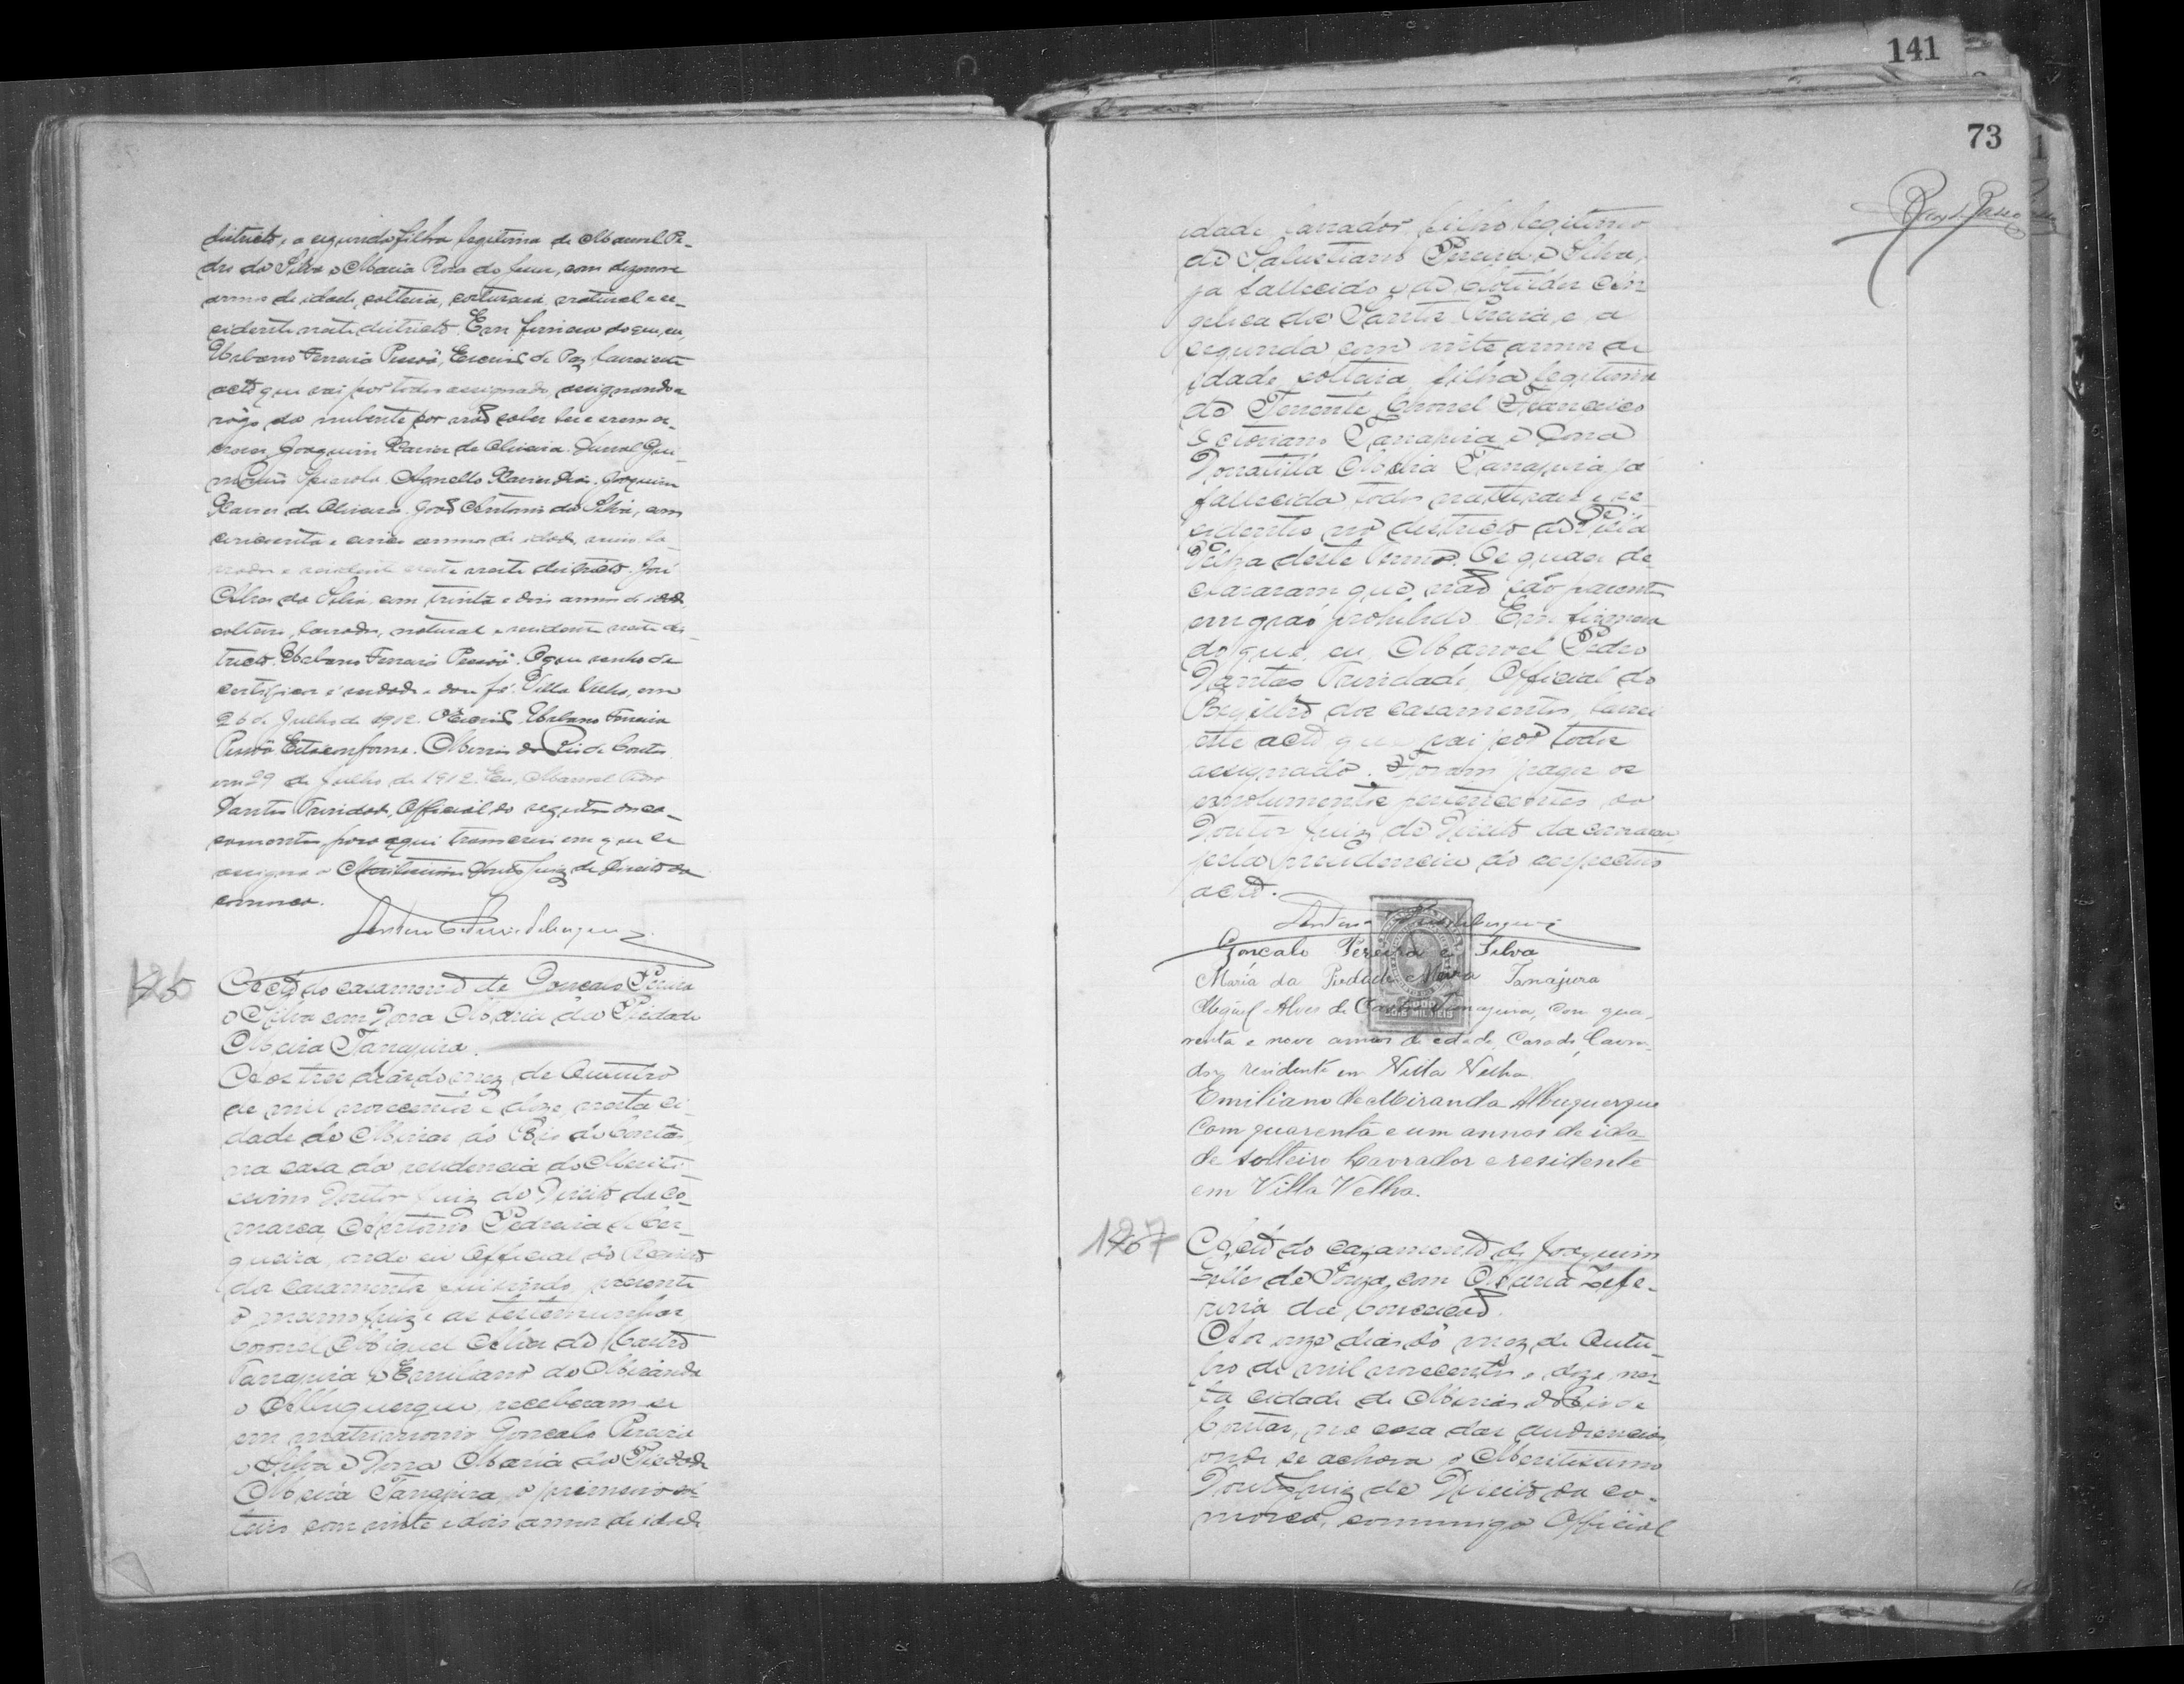 districto, a segunda filha legitima de Manoel Pe-
dro da Silva e Maria Rosa de Jesus, com dezenove
annos de idade, solteira, costureira, natural e re-
sidente neste districto. Em firmeza do que, eu,
Urbano Ferreira Pessôa, Escrivão de Paz, lavrei este
acto que vai por todos assignado, assignando a
rôgo do nubente por não saber ler e escrever
Joaquim Xavier de Oliveira. Durval
Spinola. Agnello Xavier Dias. Joaquim
Xavier de Oliveira. João Antonio da Silva, com
cincoenta e cinco annos de idade, la-
vrador e residente neste districto. José
Alves da Silva, com trinta e dois annos de idade
solteiro, lavrador, natural e residente neste dis-
tricto. Urbano Ferreira Pessôa. O que venho de
certificar é verdade e dou fé. Villa Velha, em
26 de Julho de 1912. O Escrivão Urbano Ferreira
Pessôa. Está conforme. Minas do Rio de Contas
em 29 de Julho de 1912. Eu, Manoel Pedro
Dantas Trindade, Official do registro dos ca-
samentos, para aqui transcrevi em que se
assigna o Meritissimo Doutor Juiz de Direito da
comarca.
Acto do casamento de Gonçalo Pereira
e Silva com Dona Maria da Piedade
Meira Tanajura.
Aos tres dias do mez de Outubro
de mil novecentos e doze, nesta ci-
dade de Minas do Rio de Contas,
na casa da residencia do Meritis-
simo Doutor Juiz de Direito da Co-
marca, Antonio Pedreira de Cer-
queira, onde eu Official do Registro
dos Casamentos, presente
o mesmo Juiz e as testemunhas
Coronel Miguel Alves de Castro
Tanajura e Emiliano de Miranda
e Albuquerque, receberam-se
em matrimonio Gonçalo Pereira
e Silva e Dona Maria da Piedade
Meira Tanajura, o primeiro sol-
teiro com vinte e dois annos de idade
141
73
idade lavrador, filho legitimo
de Salustiano Pereira e Silva,
ja fallecido, e de Clotildes An-
gelica dos Santos Pereira, e a
segunda com vinte annos de
idade, solteira, filha legitima
do Tenente Coronel Francisco
Victoriano Tanajura e Dona
Donatilla Meira Tanajura, já
fallecida, todos naturaes e re-
sidentes no districto de Villa
Velha deste Termo. Os quaes de-
clararam que não são parentes
em gráo prohibido. Em firmeza
do que, eu, Manoel Pedro
Dantas Trindade, Official do
Registro dos casamentos, lavrei
este acto que vai por todos
assignado. Foram pagos os
emolumentos pertencentes ao
Doutor Juiz de Direito da comarca,
pela presidencia do respectivo
acto.
Gonçalo Pereira e Silva
Maria da Piedade Meira Tanajura
Miguel Alves de Castro Tanajura, com qua-
renta e nove annos de edade, Casado, Lavra-
dor, residente em Villa Velha.
Emiliano de Miranda Albuquerque
Com quarenta e um annos de ida-
de solteiro Lavrador e residente
em Villa Velha.
Acto do casamento de Joaquim
Telles de Souza, com Maria Zefe-
rina da Conceição.
Aos onze dias do mez de Outu-
bro de mil novecentos e doze, nes-
ta cidade de Minas do Rio de
Contas, na casa das audiencias
onde se achava o Meritissimo
Doutor Juiz de Direito da co-
marca, commigo Official